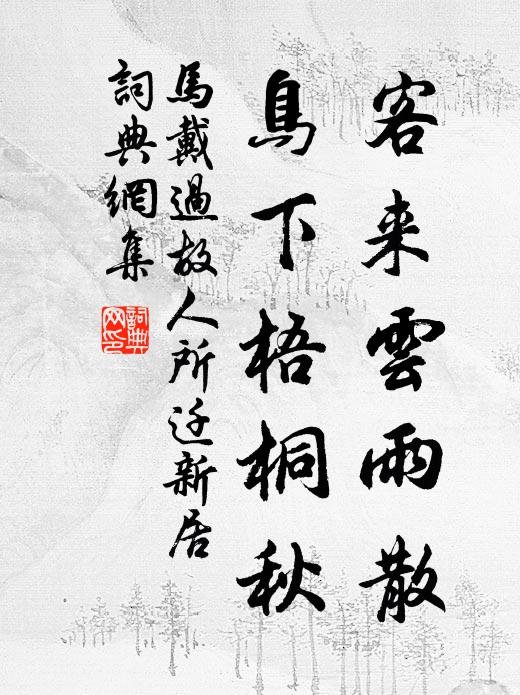 客来雲雨散
鳥下梧桐秋
馬戴過故人所迁新居
詞典網集
詞典
网印